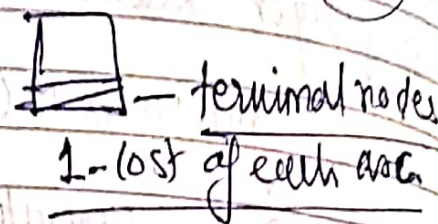 - terminal nodes
1 - cost of each arc